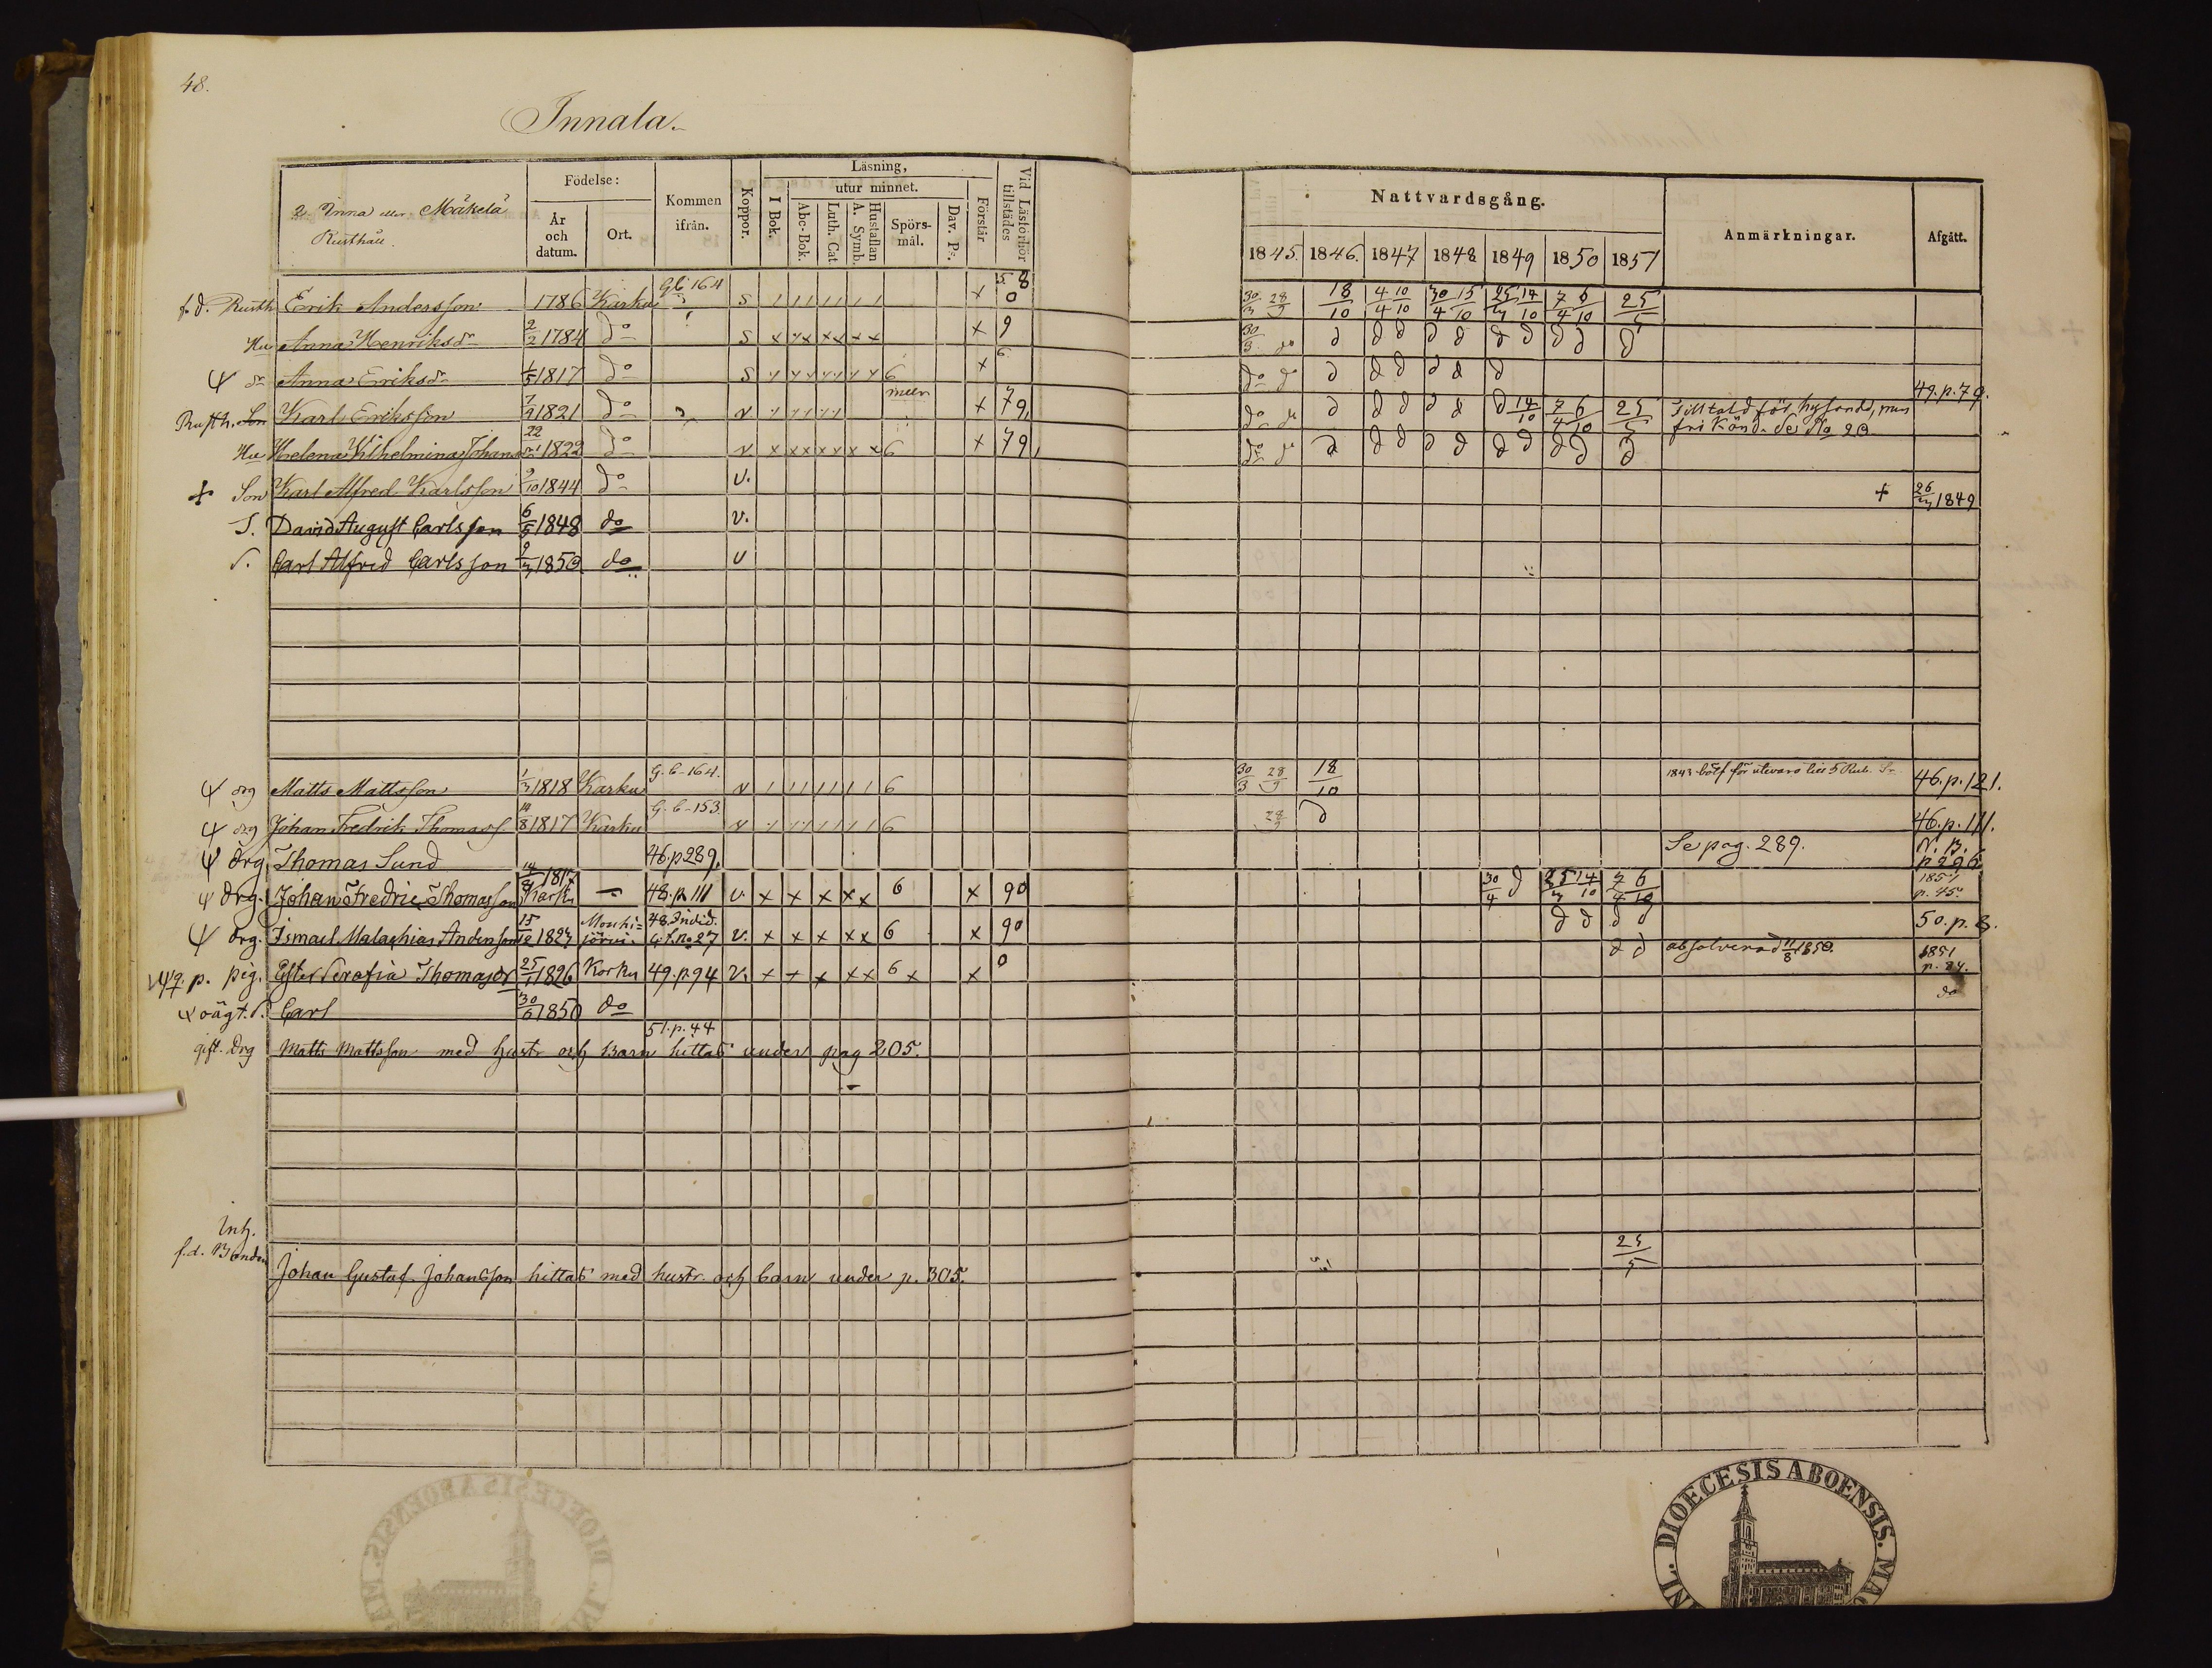 48.
Innala.
2. Inna eller Mäkelä
Rusthåll.
Födelse:
År och datum.
Ort.
Kommen ifrån.
Koppor.
Läsning,
I Bok.
utur minnet.
Abc-Bok.
Luth. Cat
Hustaflan A. Symb.
Spörsmål.
Dav. Ps.
Förstår
Vid Läsförhör tillstädes
Nattvardsgång.
1845. 1846. 1847 1848 1849 1850 1851
Anmärkningar.
Afgått.
f.d. Rusth Erik Andersson 1786 Karku G.C 164 S 58 0 30/3 28/9 18/10 4/4 10/10 30/4 15/10 25/3 14/10 7/4 6/10 25/5
Hu Anna Henriksdr 2/2 1784 do S x x x x x x x x 9 30/3 do d d d d d d d d d d
dr Anna Eriksdr 1817 do S 6 x 6 do d d d d d d d 49. p. 79.
Rusth. Son Karl Eriksson 7/9 1821 do v x 79, do d d d d d d d 14/10 7/4 6/10 25/5 Tilltald för
fri Känd. de 20
Hu Helena Vilhelmina Johansdr 22/ 1822 do v x x x x x x x 6 x 79, do d d d d d d d d d d d
+ Son Karl Alfred Karlsson 9/10 1844 do v. + 26/3 1849
S. David August Carlsson 6/5 1848 do v.
S. Carl Alfred Carlsson 9/3 1850 do v
drg Matts Mattsson 1/3 1818 Karku G. C - 164. v 6 30/3 28/9 18/10 1843 bött för utevaro 5 Rub. Sr 46. p. 121.
drg Johan Fredrik Thomass. 14/8 1817 Karku G. C - 153. v 6 28/9 d 46. p. 111.
Drg Thomas Sund 46. p 289. Se pag. 289. N. B. p 296
Drg. Johan Fredric Thomasson 14/8 1817 Karku 48. p. 111 v. x x x x x 6 x 90 30/4 d 25/3 14/10 7/4 6/10 1851 p. 45.
Drg. Ismael Malachias Andersson 15/12 1824 Mouhijärvi 48. Indid. G. f. No 27 v. x x x x x 6 x 90 d d d d 50. p. 8.
p. pig. Ester Serafia Thomasdr 25/1 1826 Karku 49. p. 94 v. x x x x x 6 x x 0 d d absolverad 11/8 1850. 1851 p. 84.
oägt. S. Carl 30/6 1850 do do
51. p. 44
gift. Drg Matts Mattsson med hustr och Barn hittas under pag 205.
Inh.
f.d. Bonden
Johan Gustaf Johansson hittas med hustr. och barn under p. 305. 25/5
DIOECESIS ABOENSIS.